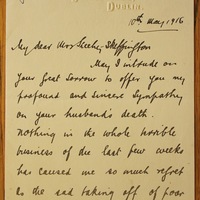 DUBLIN.
10th May, 1916
My dear Mrs Sheehy Skeffington
May I intrude on
your Great Sorrow to offer you my
profound and sincere Sympathy
on your husband's death.
Nothing in the whole horrible
business of the last few weeks
has caused me so much regret
as the sad taking off of poor